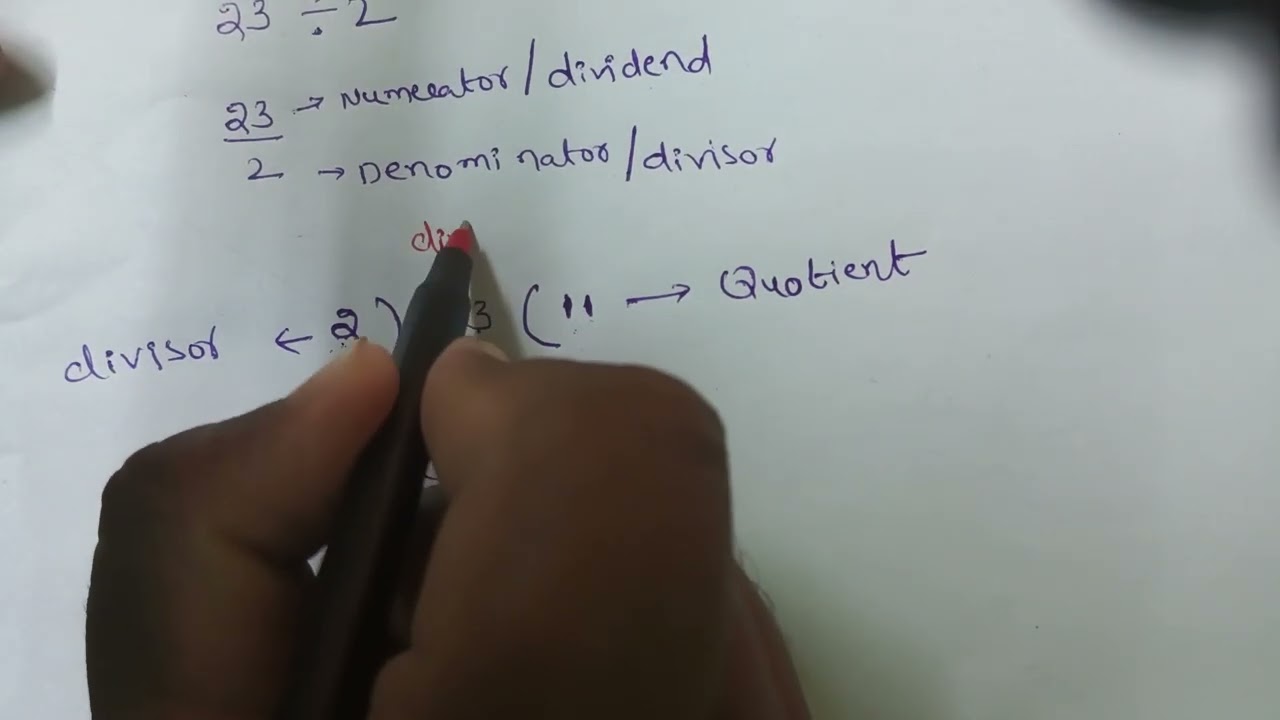 23 ÷ 2
23 → Numerator/dividend
2 → Denominator/divisor
di
divisor ← 2) 3 (11 → Quotient